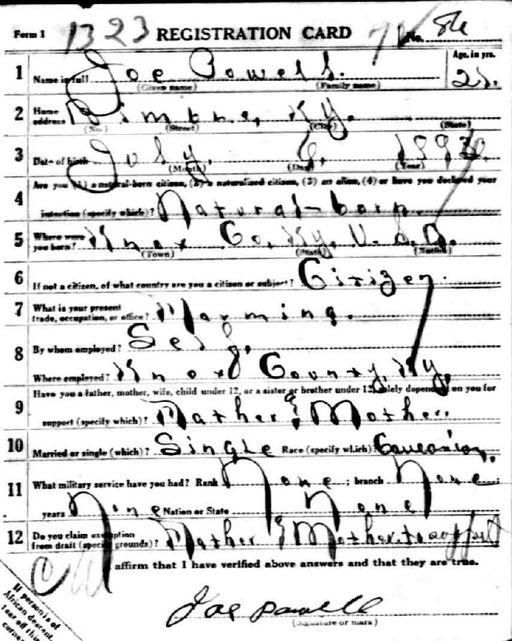 Form 1 1323 REGISTRATION CARD No. 86
1 Name in full Joe Powell. Age, in yrs. 23.
(Given name) (Family name)
2 Home address Bimble, Ky.
(No.) (Street) (City) (State)
3 Date of birth July, 6, 1893
(Month) (Day) (Year)
4 Are you (1) a natural-born citizen, (2) a naturalized citizen, (3) an alien, (4) or have you declared your
intention (specify which)? Natural-born.
5 Where were you born? Knox Co, Ky, U.S.A.
(Town) (State) (Nation)
6 If not a citizen, of what country are you a citizen or subject? Citizen.
7 What is your present trade, occupation, or office? Farming.
8 By whom employed? Self,
Where employed? Knox County, Ky,
9 Have you a father, mother, wife, child under 12, or a sister or brother under 12, solely dependent on you for
support (specify which)? Father & Mother.
10 Married or single (which)? Single Race (specify which)? Caucasian,
11 What military service have you had? Rank None ; branch None
years None Nation or State None
12 Do you claim exemption from draft (specify grounds)? Father & Mother to support
I affirm that I have verified above answers and that they are true.
Joe Powell
(Signature or mark)
If person is of
African descent,
tear off this
corner